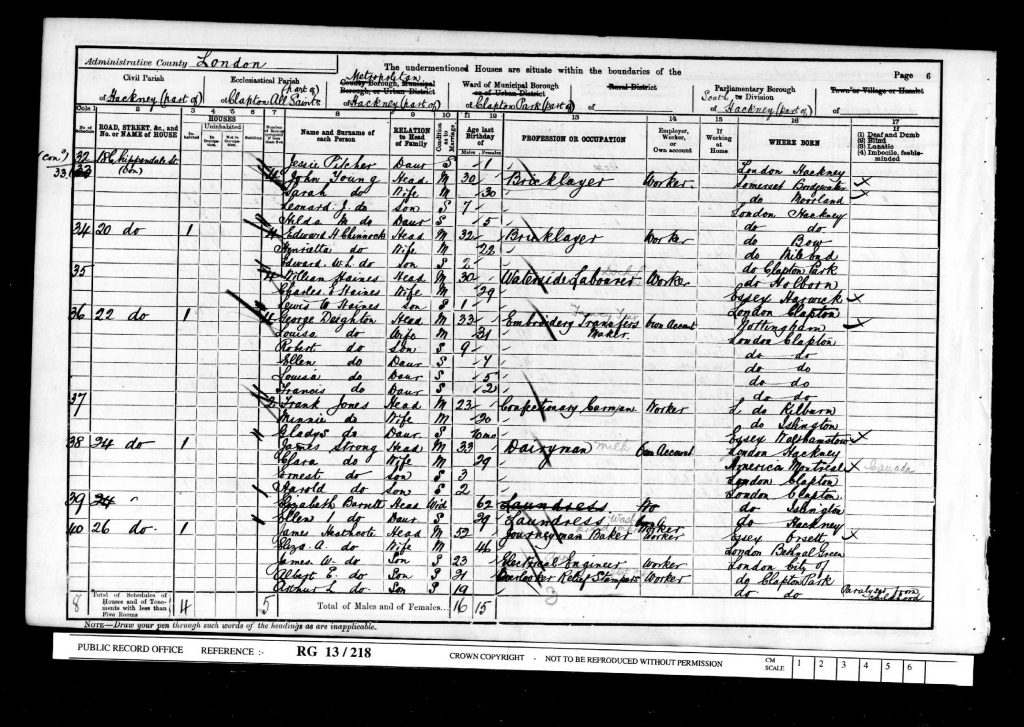 Administrative County London
The undermentioned Houses are situate within the boundaries of the
Page 6
Civil Parish
of Hackney (part of)
Ecclesiastical Parish
(part of)
of Clapton All Saints
Metropolitan
County Borough, Municipal
Borough, or Urban District
of Hackney (part of)
Ward of Municipal Borough
or of Urban District
of Clapton Park (part of)
Rural District
of
Parliamentary Borough
South or Division
of Hackney (part of)
Town or Village or Hamlet
of
Cols. 1 2 3 4 5 6 7 8 9 10 11 12 13 14 15 16 17
No. of Schedule
ROAD, STREET, &c., and No. or NAME of HOUSE
HOUSES
Inhabited
Uninhabited
In Occupation
Not in Occupation
Building
Number of Rooms occupied if less than five
Name and Surname of each Person
RELATION to Head of Family
Condition as to Marriage
Age last Birthday of
Males Females
PROFESSION OR OCCUPATION
Employer, Worker, or Own account
If Working at Home
WHERE BORN
(1) Deaf and Dumb
(2) Blind
(3) Lunatic
(4) Imbecile, feeble-minded
32 18 Chippendale St Jessie Pitcher Daur S 1 London Hackney
33 (Con) 4 John Young Head M 30 Bricklayer Worker Somerset Bridgewater
Sarah do Wife M 30 do Moorland
Leonard J. do Son S 7 London Hackney
Hilda M. do Daur S 5 do do
34 20 do 1 4 Edward H. Chinnock Head M 32 Bricklayer Worker do Bow
Henrietta do Wife M 22 do Mile End
Edward W.L. do Son S 2 do Clapton Park
35 4 William Haines Head M 30 Waterside Labourer Worker do Holborn
Haines Wife M 29 Essex Harwick
Lewis W. Haines Son S 1 London Clapton
36 22 do 1 4 George Deighton Head M 33 Embroidery Transfers Maker Own Account Nottingham
Louisa do Wife M 31 London Clapton
Robert do Son S 9 do do
Ellen do Daur S 7 do do
Louisa do Daur S 5 do do
Francis do Daur S 2 do do
37 2 Frank Jones Head M 23 Confectionary Carman Worker do Kilburn
Minnie do Wife M 20 do Islington
Gladys do Daur S 10mo Essex Walthamstow
38 24 do 1 James Strong Head M 33 Dairyman milk Own Account London Hackney
Clara do Wife M 29 America Montreal Canada
Ernest do Son S 3 London Clapton
Harold do Son S 2 London Clapton
39 24 " Elizabeth Barnett Head Wid 62 Laundress do Islington
Ellen do Daur S 29 Laundress Worker do Hackney
40 26 do 1 James Heathcote Head M 52 Journeyman Baker Worker Essex Orsett
Eliza A. do Wife M 46 London Bethnal Green
James W. do Son S 23 Electrical Engineer Worker London City of
Albert E. do Son S 21 Relief Stamper Worker do Clapton Park
Arthur L. do Son S 19 do do Paralysed from childhood
8 Total of Schedules of Houses and of Tenements with less than Five Rooms 4 5 Total of Males and of Females... 16 15
NOTE—Draw your pen through such words of the headings as are inapplicable.
PUBLIC RECORD OFFICE REFERENCE :- RG 13/218 CROWN COPYRIGHT - NOT TO BE REPRODUCED WITHOUT PERMISSION CM SCALE 1 2 3 4 5 6